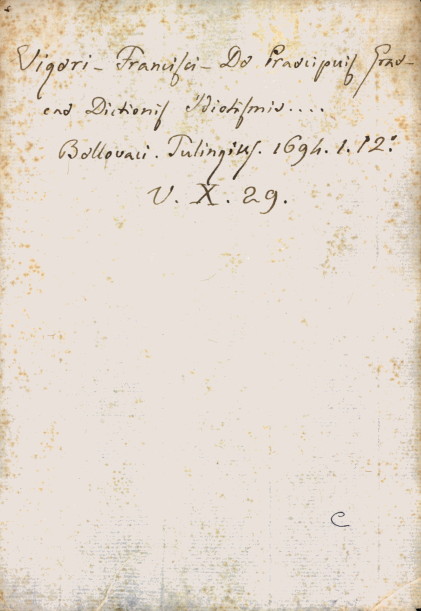 Vigeri - Francisci - De Praecipuis Grae-
cae Dictionis Idiotismis....
Bellovaci. Tulingius. 1694. 1. 12º
V. X. 29.
C